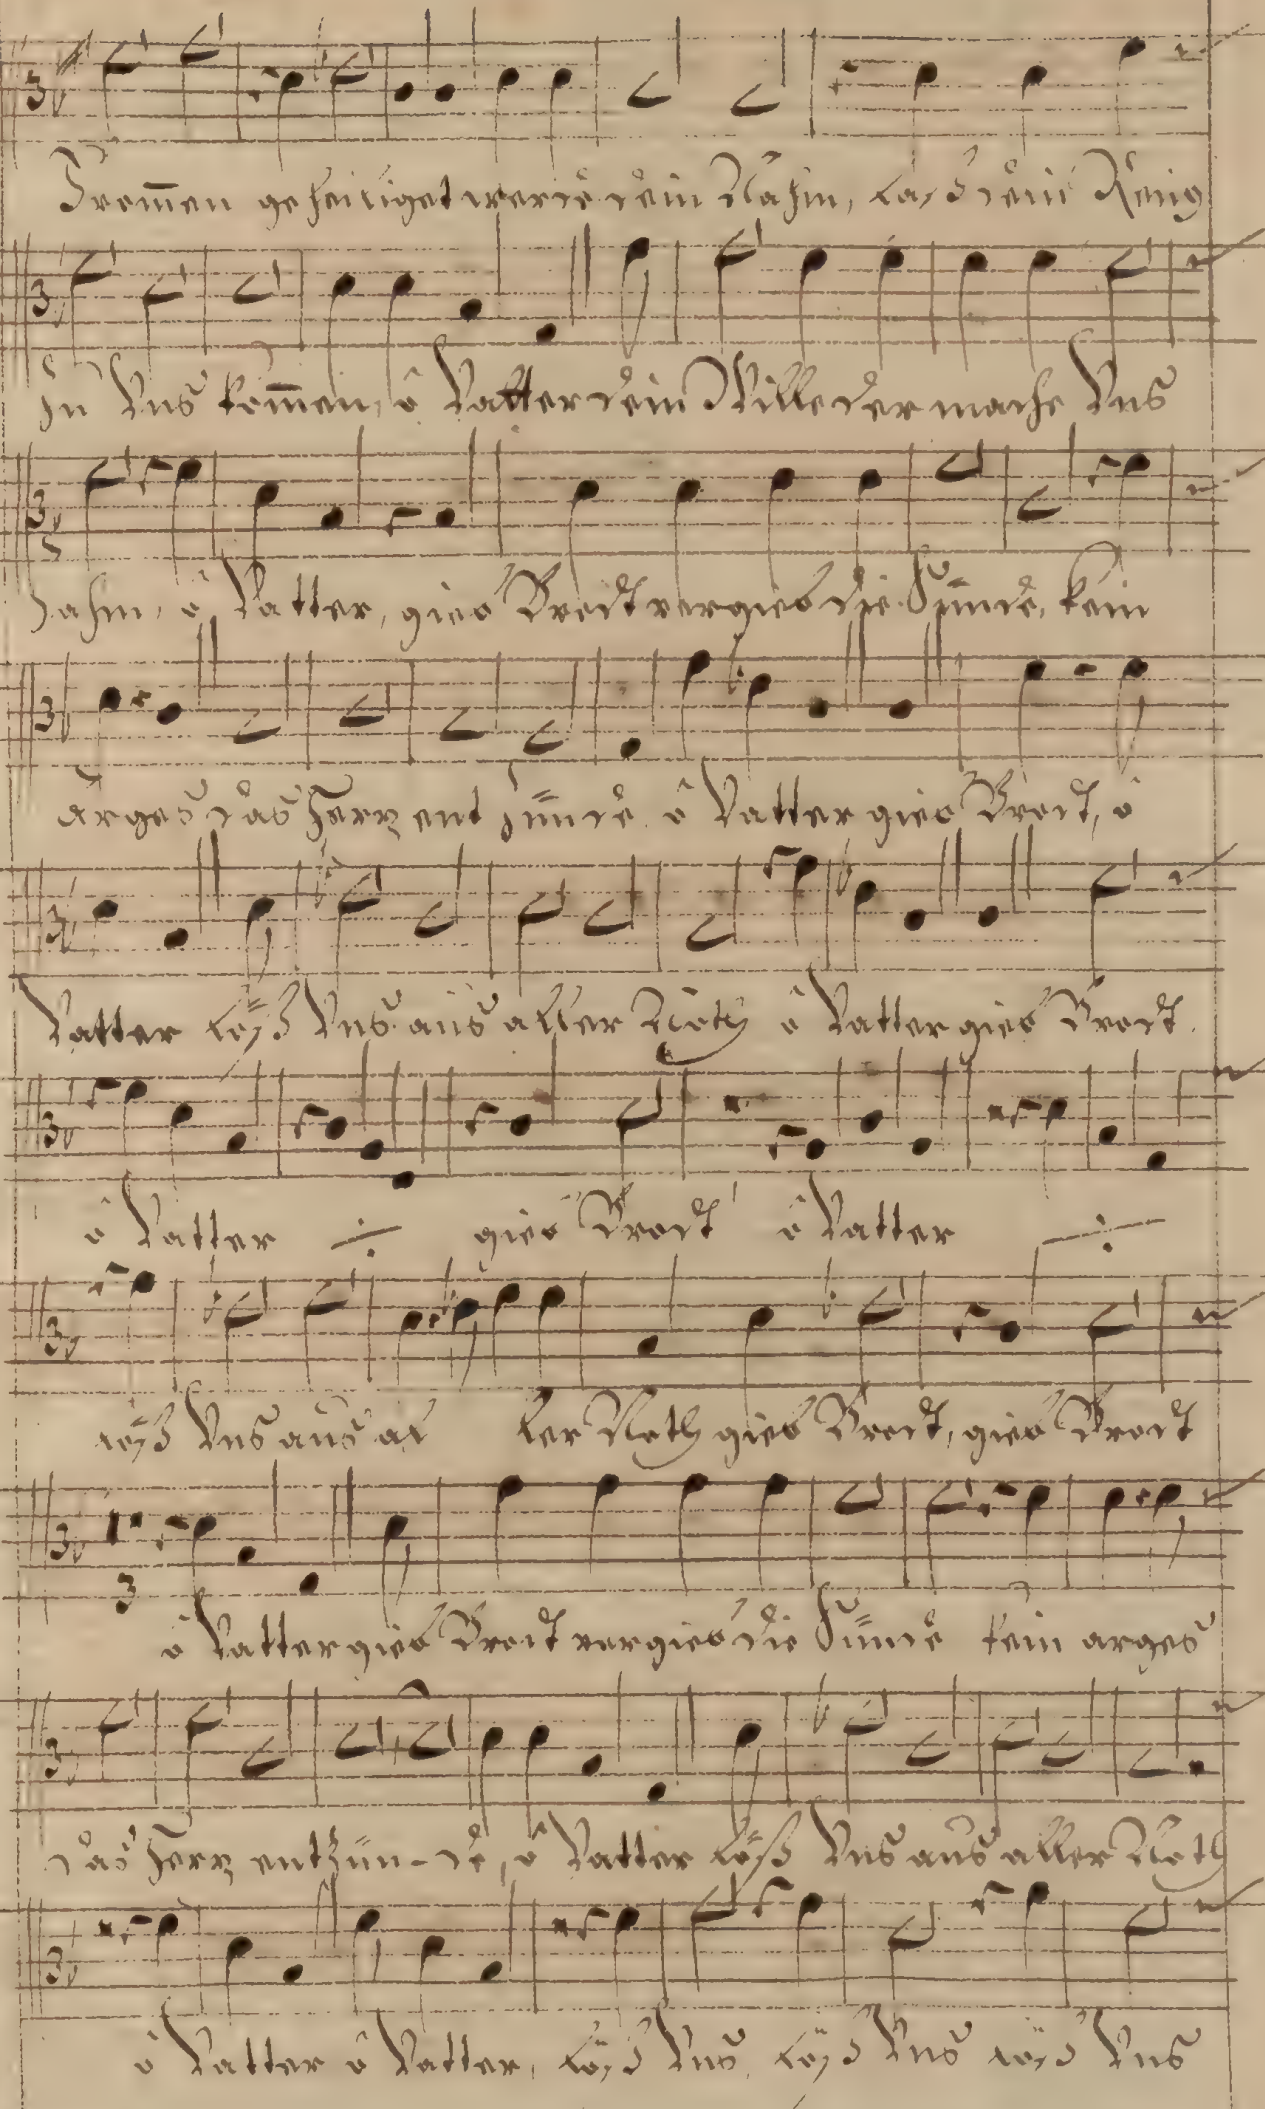 From̅en geheiliget werde dein Nahm, laß dein Renig
In Vns kom̅en, ô Vatter dein Wille der mache Vns
Zahm, ô Vatter, gieb Brodt vergieb die Sünde, kein
Arges das Hertz entzünde ô Vatter gieb Brodt, ô
Vatter Löß Vns aus aller Nöth ô Vatter gieb Brodt.
ô Vatter ÷ gieb Brodt ô Vatter ÷
löß Vns aus al ler Noth gieb Brodt, gieb Brodt
3
ô Vatter gieb Brodt vergieb die Sünde kein arges
das Hertz entzün-de, ô Vatter Löß Vns aus aller Nöth
ô Vatter ô Vatter, Löß Vns, Löß Vns löß Vns